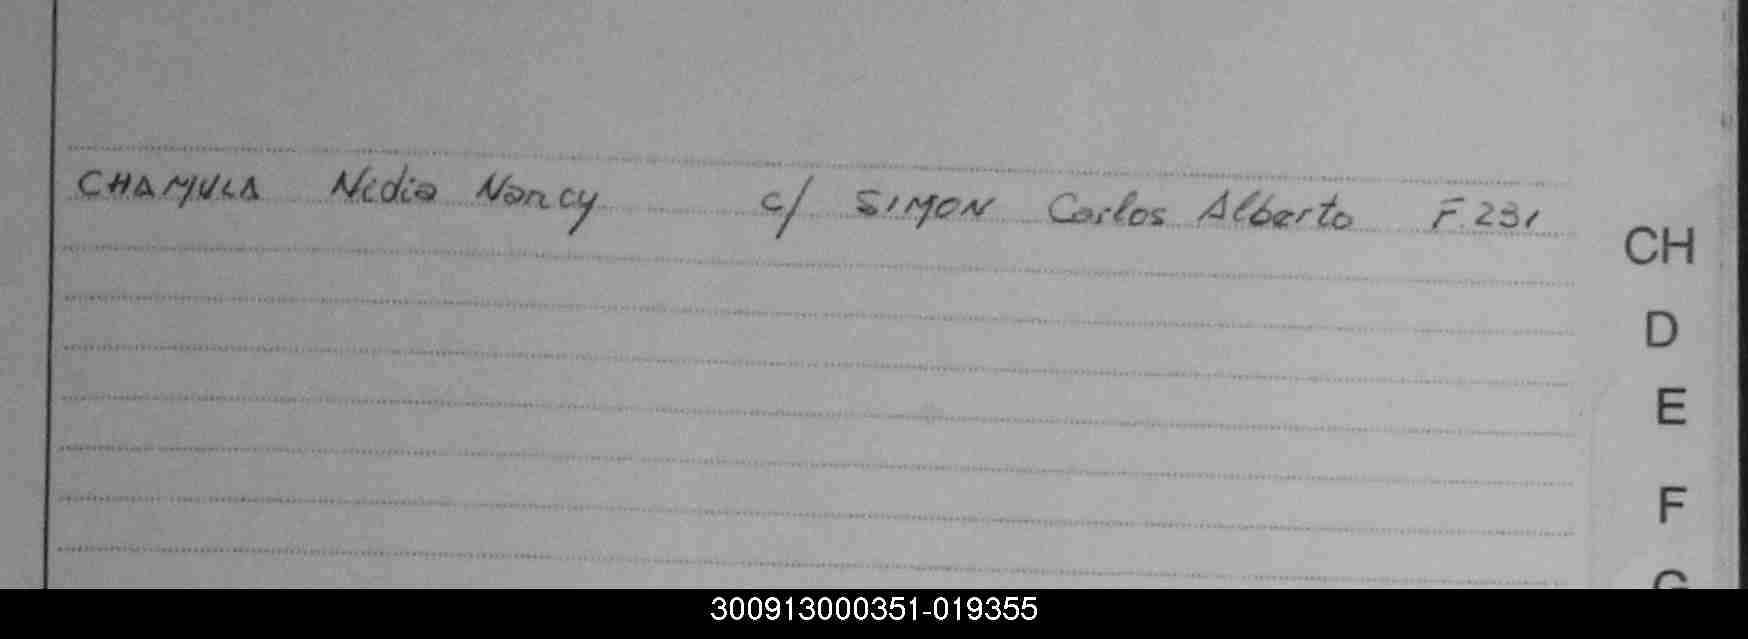 CHAMULA Nidia Nancy c/ SIMON Carlos Alberto F.231
CH
D
E
F
G
300913000351-019355